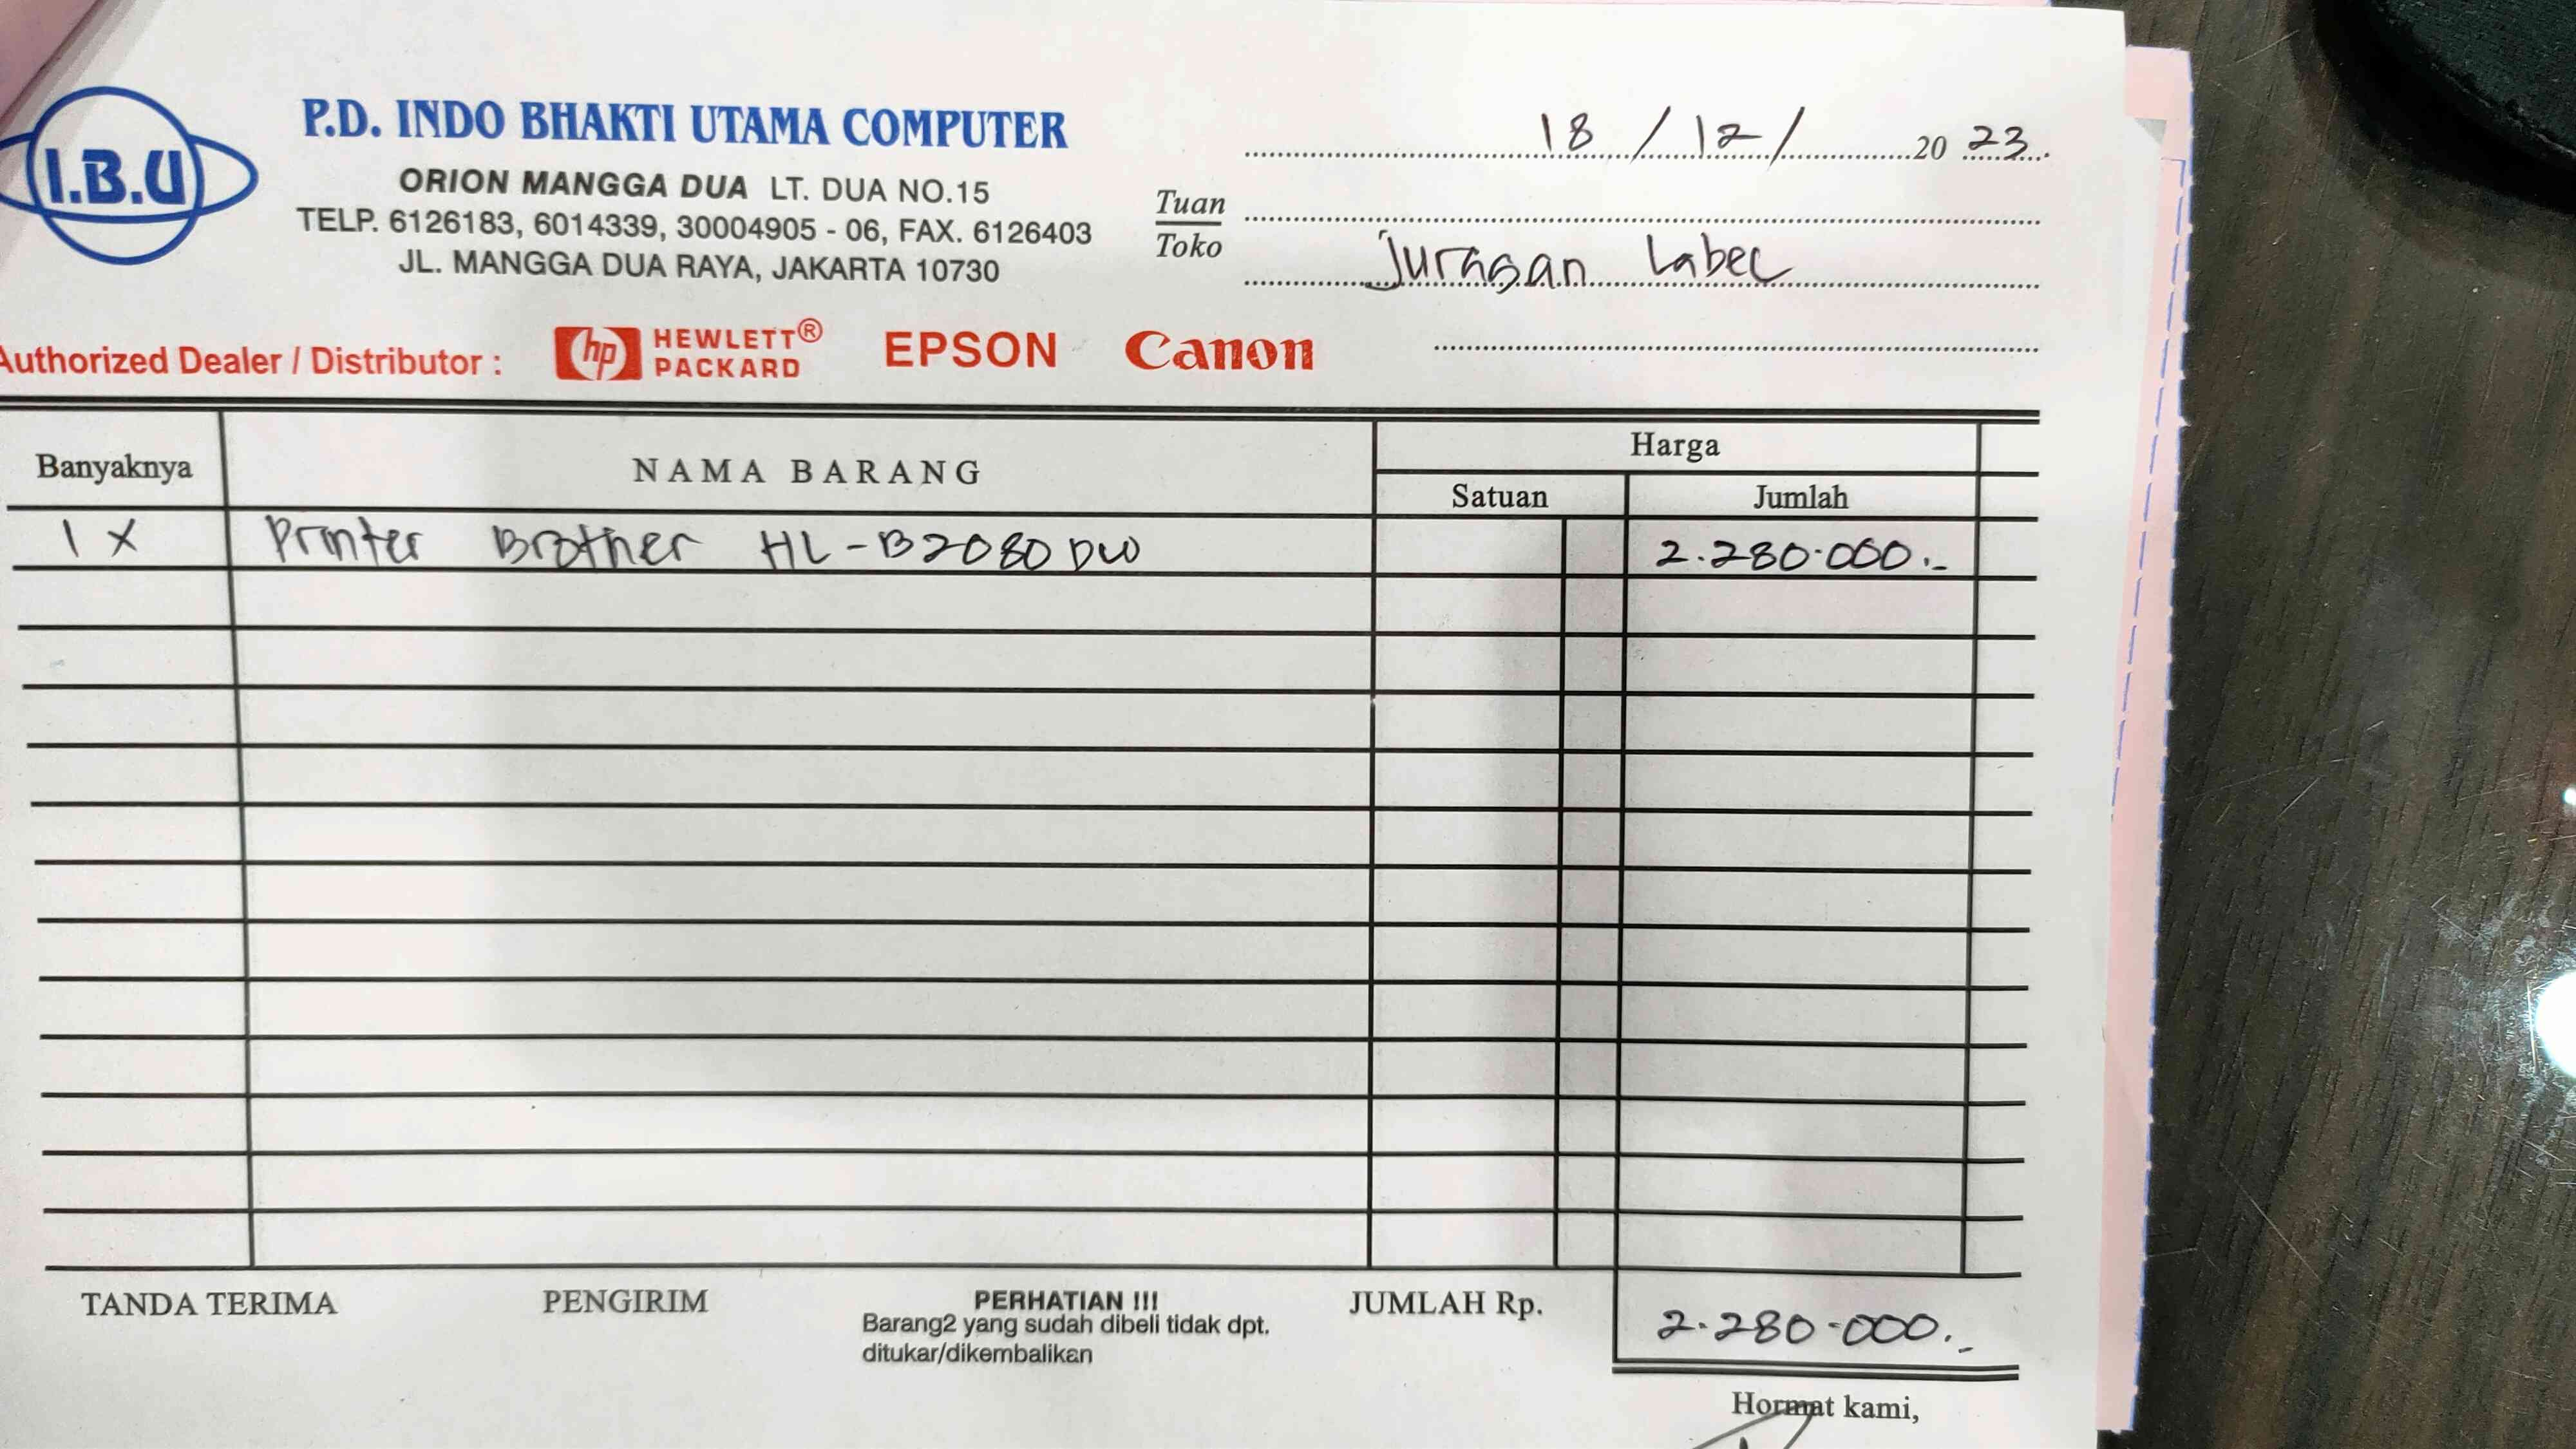 I.B.U
P.D. INDO BHAKTI UTAMA COMPUTER
ORION MANGGA DUA LT. DUA NO.15
TELP. 6126183, 6014339, 30004905 - 06, FAX. 6126403
JL. MANGGA DUA RAYA, JAKARTA 10730
18 / 12 / 20 23
Tuan
Toko
Juragan Label
Authorized Dealer / Distributor : hp HEWLETT® PACKARD EPSON Canon
Banyaknya NAMA BARANG Harga
Satuan Jumlah
1 X Printer Brother HL-B2080DW 2.280.000.-
TANDA TERIMA PENGIRIM PERHATIAN !!! JUMLAH Rp. 2.280.000.-
Barang2 yang sudah dibeli tidak dpt.
ditukar/dikembalikan
Hormat kami,